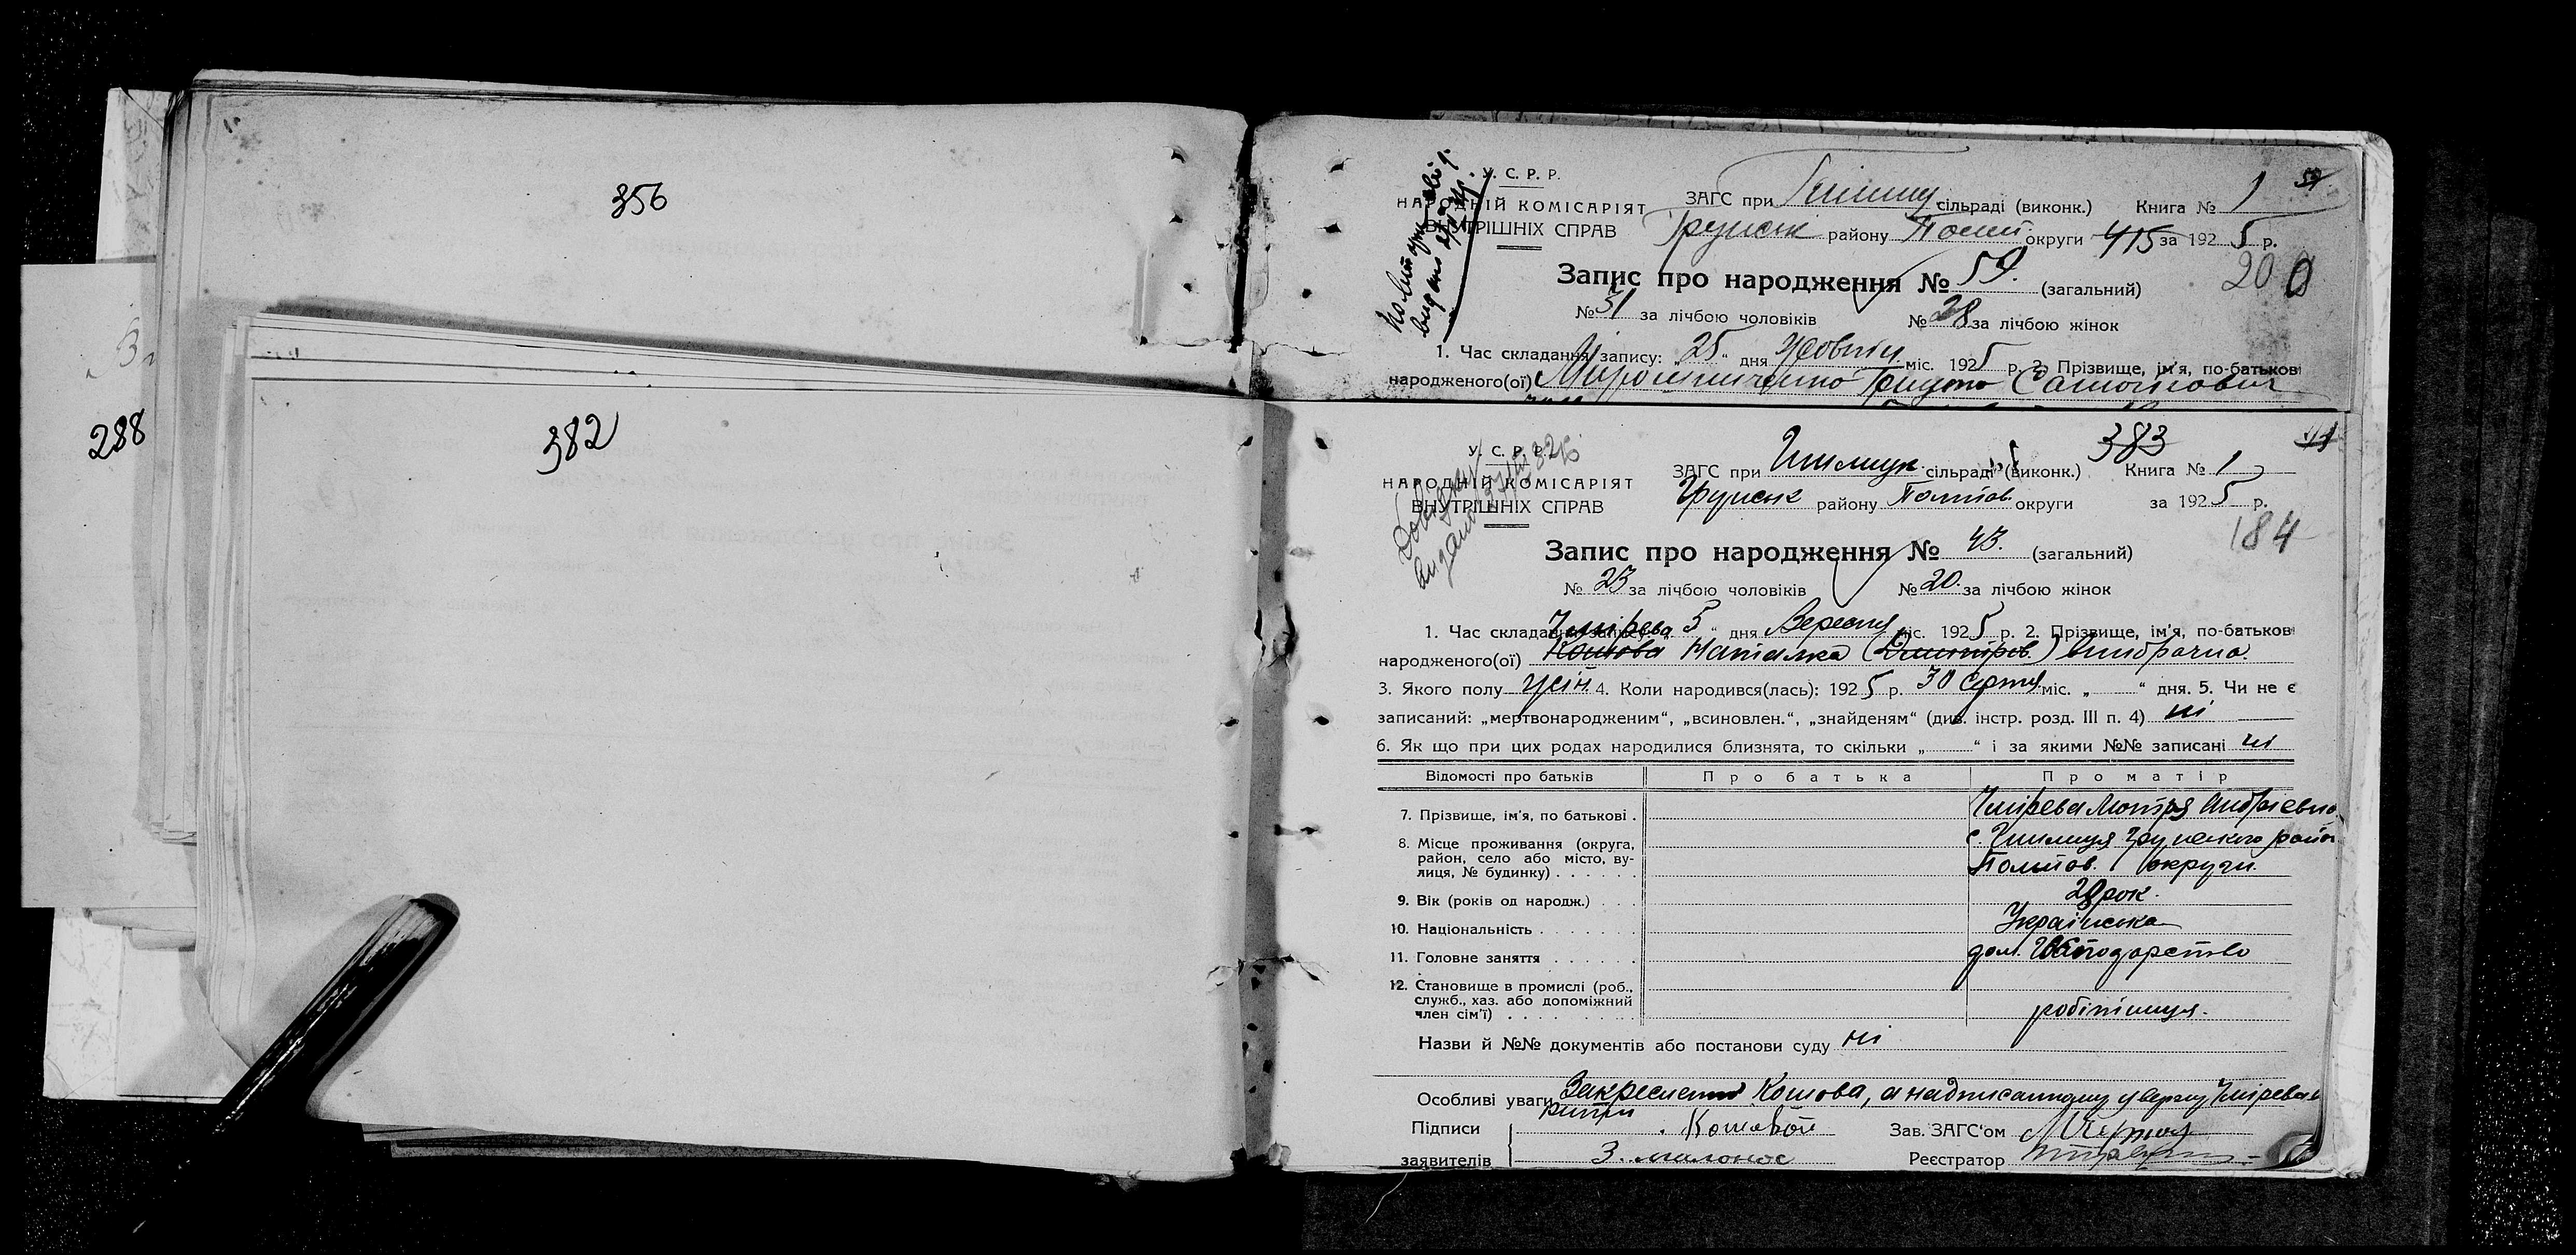 356
382
288
У. С. Р. Р.
НАРОДНІЙ КОМІСАРІЯТ
ВНУТРІШНІХ СПРАВ
ЗАГС при сільраді (виконк.) Книга № 1
Грунськ району Полт округи 415 за 1925 р.
200
Запис про народження № 59. (загальний)
№ 31 за лічбою чоловіків № 28 за лічбою жінок
1. Час складання запису: „25“ дня Жовтн міс. 1925 р. 2. Прізвище, ім'я, по-батькові
народженого(ої) Мирошниченко
383
У. С. Р. Р.
НАРОДНІЙ КОМІСАРІЯТ
ВНУТРІШНІХ СПРАВ
ЗАГС при сільраді (виконк.) Книга № 1
Грунськ району Полтав. округи за 1925 р.
184
Запис про народження № 43. (загальний)
№ 23 за лічбою чоловіків № 20. за лічбою жінок
Чмірева
1. Час складання запису: „5“ дня Вересня міс. 1925 р. 2. Прізвище, ім'я, по-батькові
народженого(ої) Кошова Наталка
3. Якого полу жін. 4. Коли народився(лась): 1925 р. 30 Серпня міс. „ “ дня. 5. Чи не є
записаний: „мертвонародженим“, „всиновлен.“, „знайденям“ (див. інстр. розд. III п. 4) ні
6. Як що при цих родах народилися близнята, то скільки „ “ і за якими №№ записані ні
Відомості про батьків Про батька Про матір
7. Прізвище, ім'я, по батькові . Чмірева Мотря Андріевна
8. Місце проживання (округа, район, село або місто, вулиця, № будинку) . . . . . . Грунского район
Полтов. округи.
9. Вік (років од народж.) . . . 28 рок.
10. Національність . . . . . . . Українська
11. Головне заняття . . . . . . дом. господарство
12. Становище в промислі (роб., служб., хаз. або допоміжний член сім'ї) . . . . . . . . робітниця.
Назви й №№ документів або постанови суду ні
Особливі уваги Закреслено Кошова, а надписанному уверху Чмірева
Підписи Кошовой Зав. ЗАГС'ом
заявителів З. Милонос Реєстратор